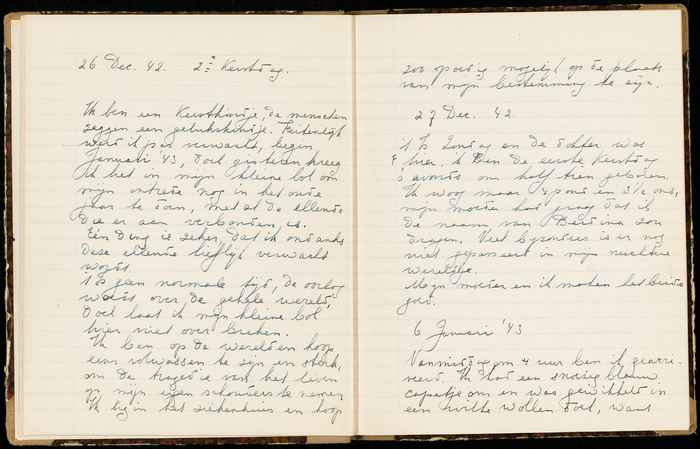 26 Dec. 42. 2e Kerstdag.
Ik ben een Kerstkindje, de menschen
zeggen een gelukskindje. Feitenlijk
werd ik pas verwacht, begin
Januari '43, doch gisteren kreeg
ik het in mijn kleine bol om
mijn entrée nog in het oude
jaar te doen, met al de ellende
die er aan verbonden is.
Eén ding is zeker, dat ik ondanks
deze ellende lieflijk verwacht
wordt.
't Is geen normale tijd, de oorlog
woedt over de gehele wereld,
doch laat ik mijn kleine bol
hier niet over breken.
Ik ben op de wereld en hoop
eens volwassen te zijn en sterk,
om de tragedie van het leven
op mijn eigen schouders te nemen
Ik lig in het ziekenhuis en hoop
zoo spoedig mogelijk op de plaats
van mijn bestemming te zijn.
27 Dec. 42.
't Is Zondag en de dokter was
hier. Ik ben de eerste Kerstdag
's avonds om half tien geboren.
Ik woog maar 4 pond en 3½ ons,
mijn moeder had graag dat ik
de naam van Bertina zou
dragen. Veel bijzonders is er nog
niet gepasseerd in mijn nuchtere
wereldje.
Mijn moeder en ik maken het beide
goed.
6 Januari '43
Vanmiddag om 4 uur ben ik gearri-
veerd. Ik had een snoezig blauw
capuetje om en was gewikkeld in
een witte wollen doek, want